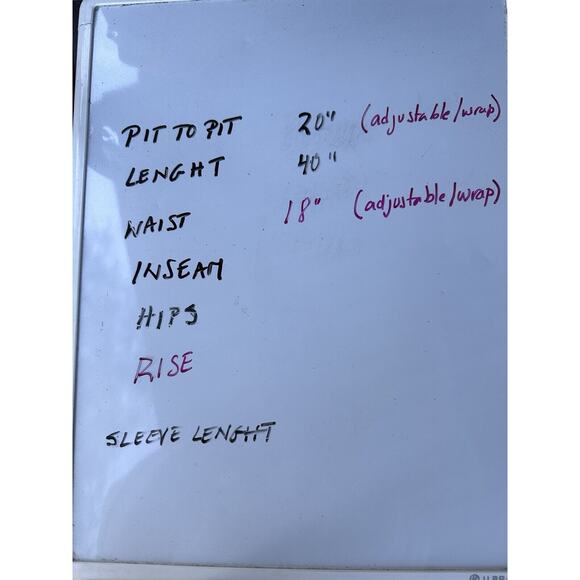 PIT TO PIT 20" (adjustable/wrap)
LENGHT 40"
WAIST 18" (adjustable/wrap)
INSEAM
HIPS
RISE
SLEEVE LENGHT